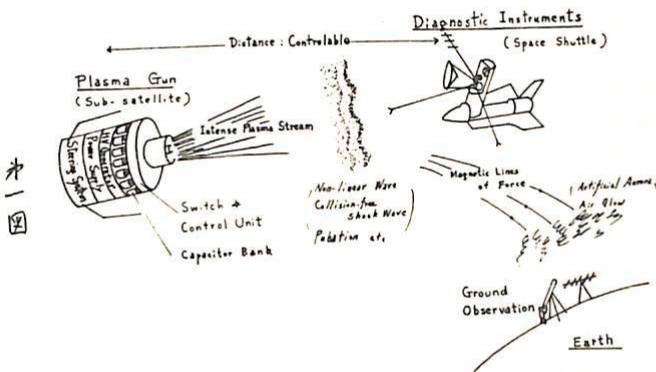 Diagnostic Instruments
(Space Shuttle)
Distance : Controlable
Plasma Gun
(Sub-satellite)
Intense Plasma Stream
HV Generator
Power Supply
Steering System
Switch &
Control Unit
Capacitor Bank
Non-linear Wave
Collision-free
Shock Wave
Magnetic Lines
of Force
Artificial
Air Glow
Ground
Observation
Earth
第一図